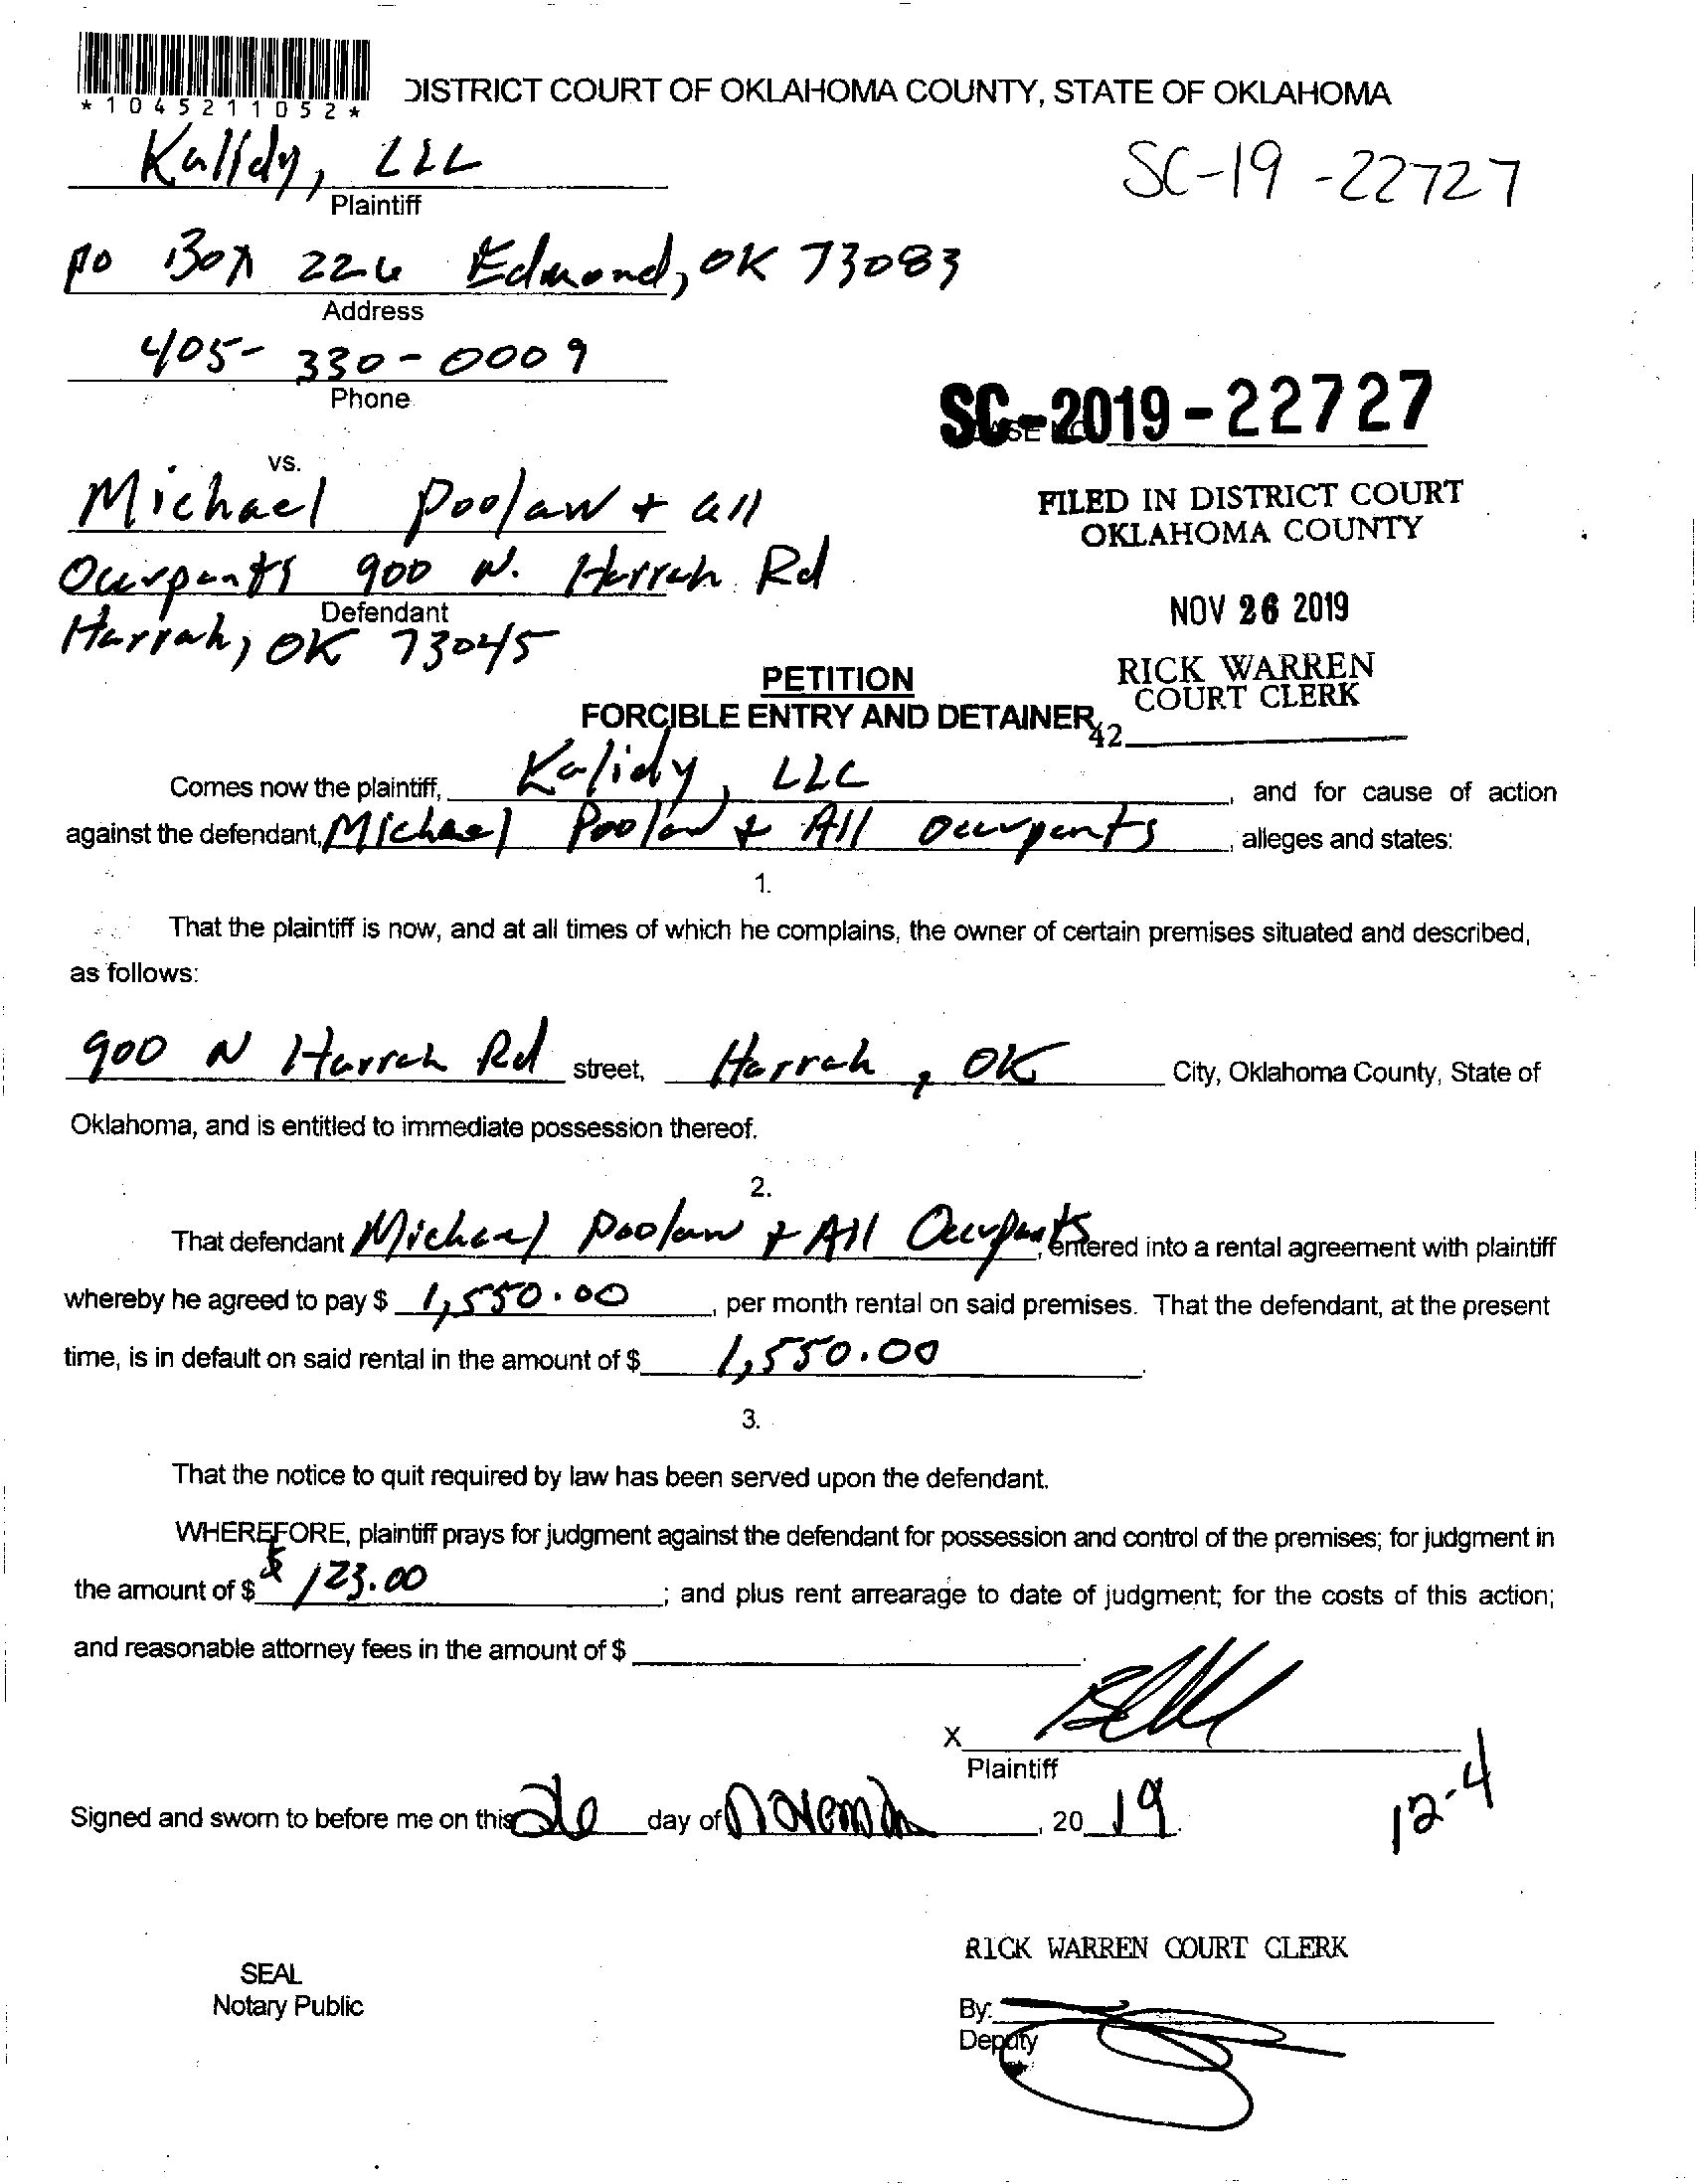 *1045211052*
DISTRICT COURT OF OKLAHOMA COUNTY, STATE OF OKLAHOMA
Kalidy, LLC
SC-19-22727
Plaintiff
PO Box 226 Edmond, OK 73083
Address
405-330-0009
Phone
SC-2019-22727
vs.
Michael Poolaw + all
FILED IN DISTRICT COURT
OKLAHOMA COUNTY
Occupants 900 N. Harrah Rd
Defendant
NOV 26 2019
Harrah, OK 73045
PETITION
RICK WARREN
COURT CLERK
FORCIBLE ENTRY AND DETAINER
42
Comes now the plaintiff, Kalidy, LLC, and for cause of action
against the defendant, Michael Poolaw + All Occupants, alleges and states:
1.
That the plaintiff is now, and at all times of which he complains, the owner of certain premises situated and described,
as follows:
900 N Harrah Rd street, Harrah, OK City, Oklahoma County, State of
Oklahoma, and is entitled to immediate possession thereof.
2.
That defendant Michael Poolaw + All Occupants, entered into a rental agreement with plaintiff
whereby he agreed to pay $ 1,550.00, per month rental on said premises. That the defendant, at the present
time, is in default on said rental in the amount of $ 1,550.00.
3.
That the notice to quit required by law has been served upon the defendant.
WHEREFORE, plaintiff prays for judgment against the defendant for possession and control of the premises; for judgment in
the amount of $ $ 123.00; and plus rent arrearage to date of judgment; for the costs of this action;
and reasonable attorney fees in the amount of $
X
Plaintiff
Signed and sworn to before me on this 26 day of November, 20 19.
12-4
RICK WARREN COURT CLERK
SEAL
Notary Public
By:
Deputy